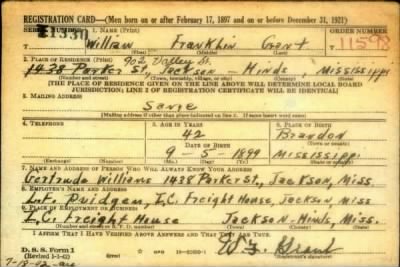 REGISTRATION CARD—(Men born on or after February 17, 1897 and on or before December 31, 1921)
SERIAL NUMBER 1. NAME (Print) ORDER NUMBER
1330 William Franklin Grant 11598
(First) (Middle) (Last)
2. PLACE OF RESIDENCE (Print) 902 Valley St.
1438 Parker St., Jackson Hinds, Mississippi
(Number and street) (Town, township, village, or city) (County) (State)
[THE PLACE OF RESIDENCE GIVEN ON THE LINE ABOVE WILL DETERMINE LOCAL BOARD
JURISDICTION; LINE 2 OF REGISTRATION CERTIFICATE WILL BE IDENTICAL]
3. MAILING ADDRESS
Same
[Mailing address if other than place indicated on line 2. If same insert word same]
4. TELEPHONE 5. AGE IN YEARS 6. PLACE OF BIRTH
42 Brandon
DATE OF BIRTH (Town or county)
9-5-1899 Mississippi
(Exchange) (Number) (Mo.) (Day) (Yr.) (State or country)
7. NAME AND ADDRESS OF PERSON WHO WILL ALWAYS KNOW YOUR ADDRESS
Gertrude Williams 1438 Parker St., Jackson, Miss.
8. EMPLOYER'S NAME AND ADDRESS
L.F. Pridgen, I.C. Freight House, Jackson, Miss
9. PLACE OF EMPLOYMENT OR BUSINESS
I.C. Freight House Jackson-Hinds, Miss.
(Number and street or R. F. D. number) (Town) (County) (State)
I AFFIRM THAT I HAVE VERIFIED ABOVE ANSWERS AND THAT THEY ARE TRUE.
D. S. S. Form 1
(Revised 1-1-42) (over)